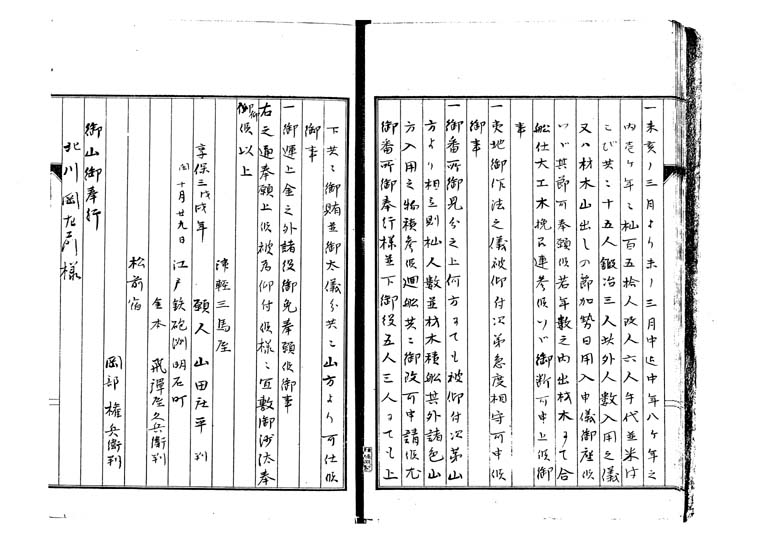 一来亥ノ三月より未ノ三月中迄中年八ケ年之
内壱ケ年ニ杣百五拾人改人六人年代並米は
こび共ニ十五人鍛冶三人此外人数入用之儀
又ハ材木山出し之節加勢日用入申儀御座候
ハヾ其節可奉願候若年数之内出材木にて合
船仕大工木挽召連参候ハヾ御断可申上候御
事
一夷地御作法之儀被仰付次第急度相守可申候
御事
一御番所御見分之上何方にても被仰付次第山
方より相立則杣人数並材木積船其外諸色山
方入用之物積参候廻船共ニ御改可申請候尤
御番所御奉行様並下御役五人三人にても上
下共ニ御賄並御太儀分共ニ山方より可仕候
御事
一御運上金之外諸役御免奉願候御事
右之通奉願上候被為仰付候様ニ宜敷御沙汰奉
仰候以上
津軽三馬屋
享保三戊戌年 願人 山田社平 判
閏十月廿九日 江戸鉄砲洲明石町
金本 飛騨屋久兵衛判
松前宿
岡部 権兵衛判
御山御奉行
北川岡右衛門様